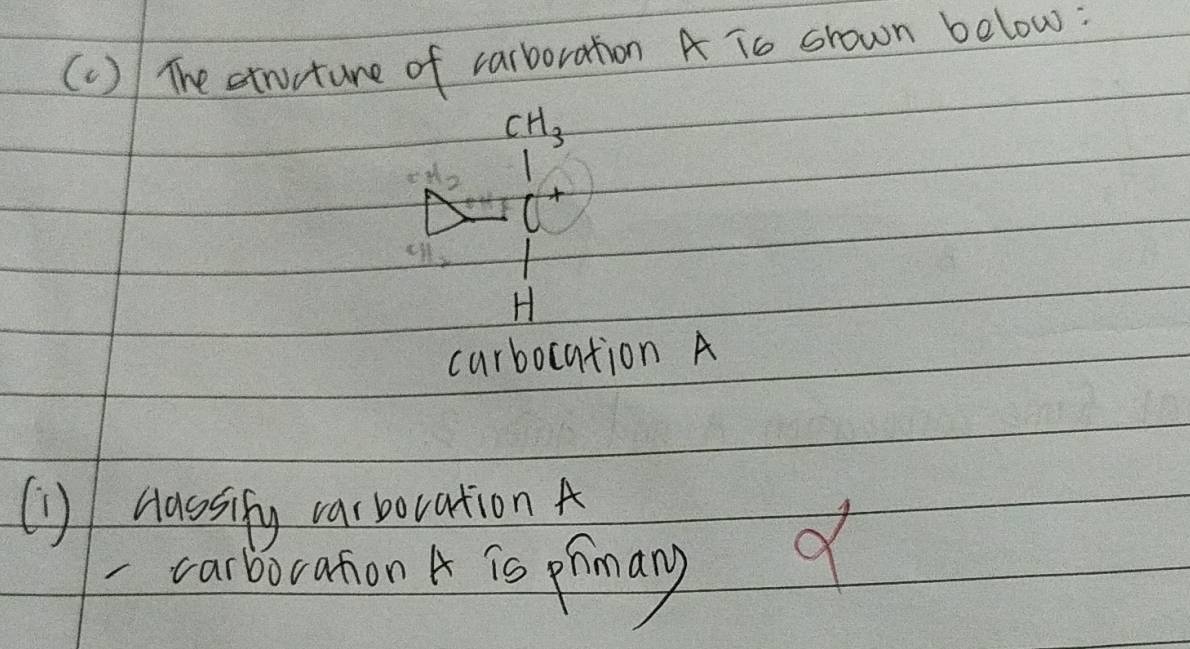 (c) The structure of carbocation A is shown below:
CH3
CH2
C+
CH2
H
carbocation A
(i) classify carbocation A
- carbocation A is primary